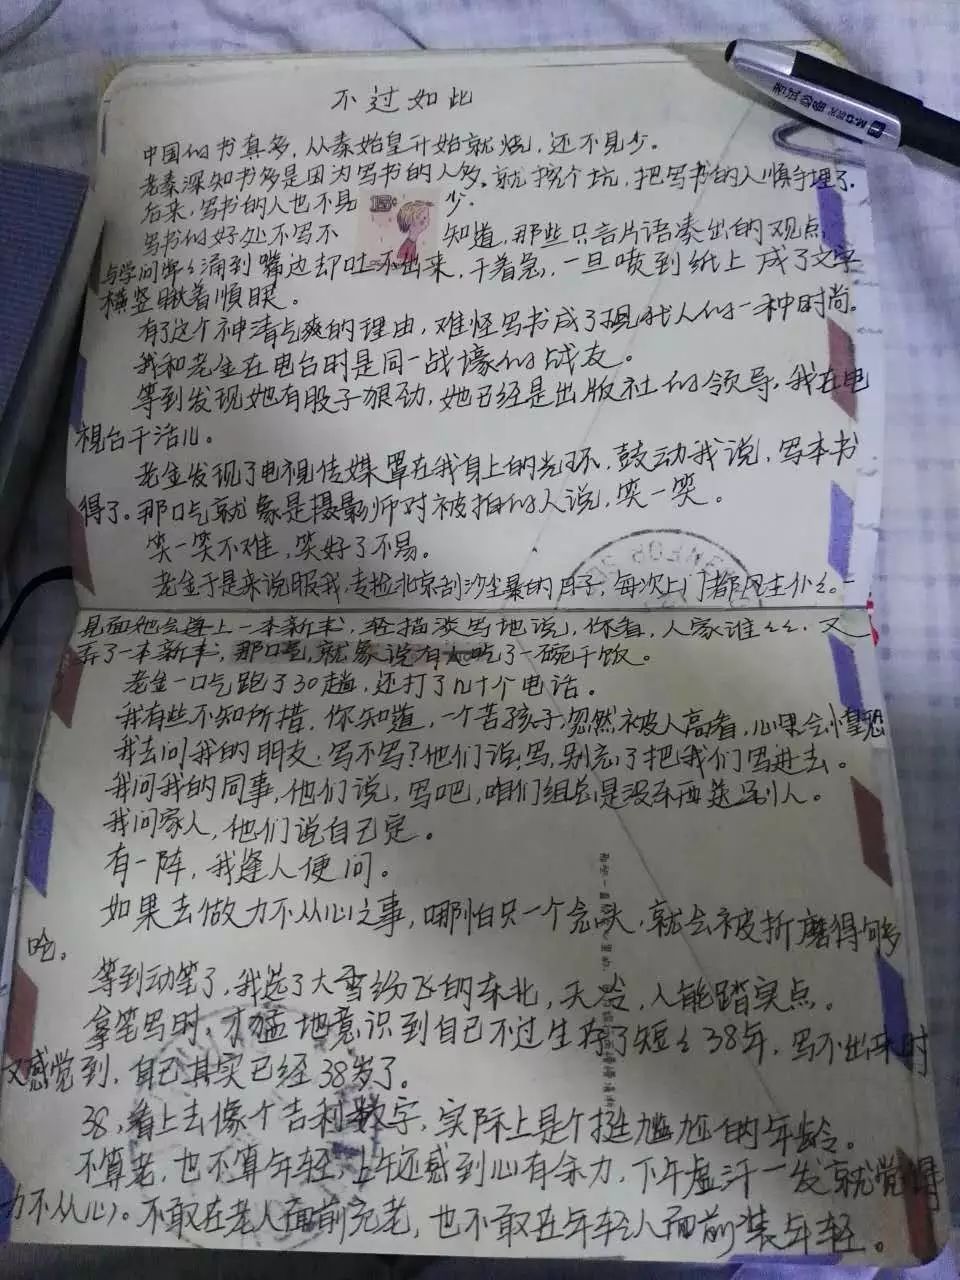 不过如此
中国的书真多，从秦始皇开始就烧，还不见少。
老秦深知书多是因为写书的人多。就挖个坑，把写书的人顺手埋了。
后来，写书的人也不见少。
写书的好处不写不知道，那些只言片语凑出的观点
与学问常常涌到嘴边却吐不出来，干着急，一旦喷到纸上成了文字
横竖瞅着顺眼。
有了这个神清气爽的理由，难怪写书成了现代人的一种时尚。
我和老金在电台时是同一战壕的战友。
等到发现她有股子狠劲，她已经是出版社的领导，我在电
视台干活儿。
老金发现了电视传媒罩在我身上的光环，鼓动我说，写本书
得了。那口气就象是摄影师对被拍的人说，笑一笑。
笑一笑不难，笑好了不易。
老金于是来说服我，专捡北京刮沙尘暴的日子，每次上门都风尘仆仆。一
见面她会递上一本新书，轻描淡写地说，你看，人家谁谁谁，又
弄了一本新书，那口气，就象说有人吃了一碗干饭。
老金一口气跑了30趟，还打了几十个电话。
我有些不知所措，你知道，一个苦孩子，忽然被人高看，心里会惶恐
我去问我的朋友，写不写？他们说写，别忘了把我们写进去。
我问我的同事，他们说，写吧，咱们组总是没东西送别人。
我问家人，他们说自己定。
有一阵，我逢人便问。
如果去做力不从心之事，哪怕只一个念头，就会被折磨得够
呛。
等到动笔了，我选了大雪纷飞的东北，天冷，人能踏实点。
拿笔写时，才猛地意识到自己不过生存了短短38年，写不出来时
又感觉到，自己其实已经38岁了。
38，看上去像个吉利数字，实际上是个挺尴尬的年龄。
不算老，也不算年轻，上午还感到心有余力，下午虚汗一发就觉得
力不从心。不敢在老人面前充老，也不敢在年轻人面前装年轻。
M&G